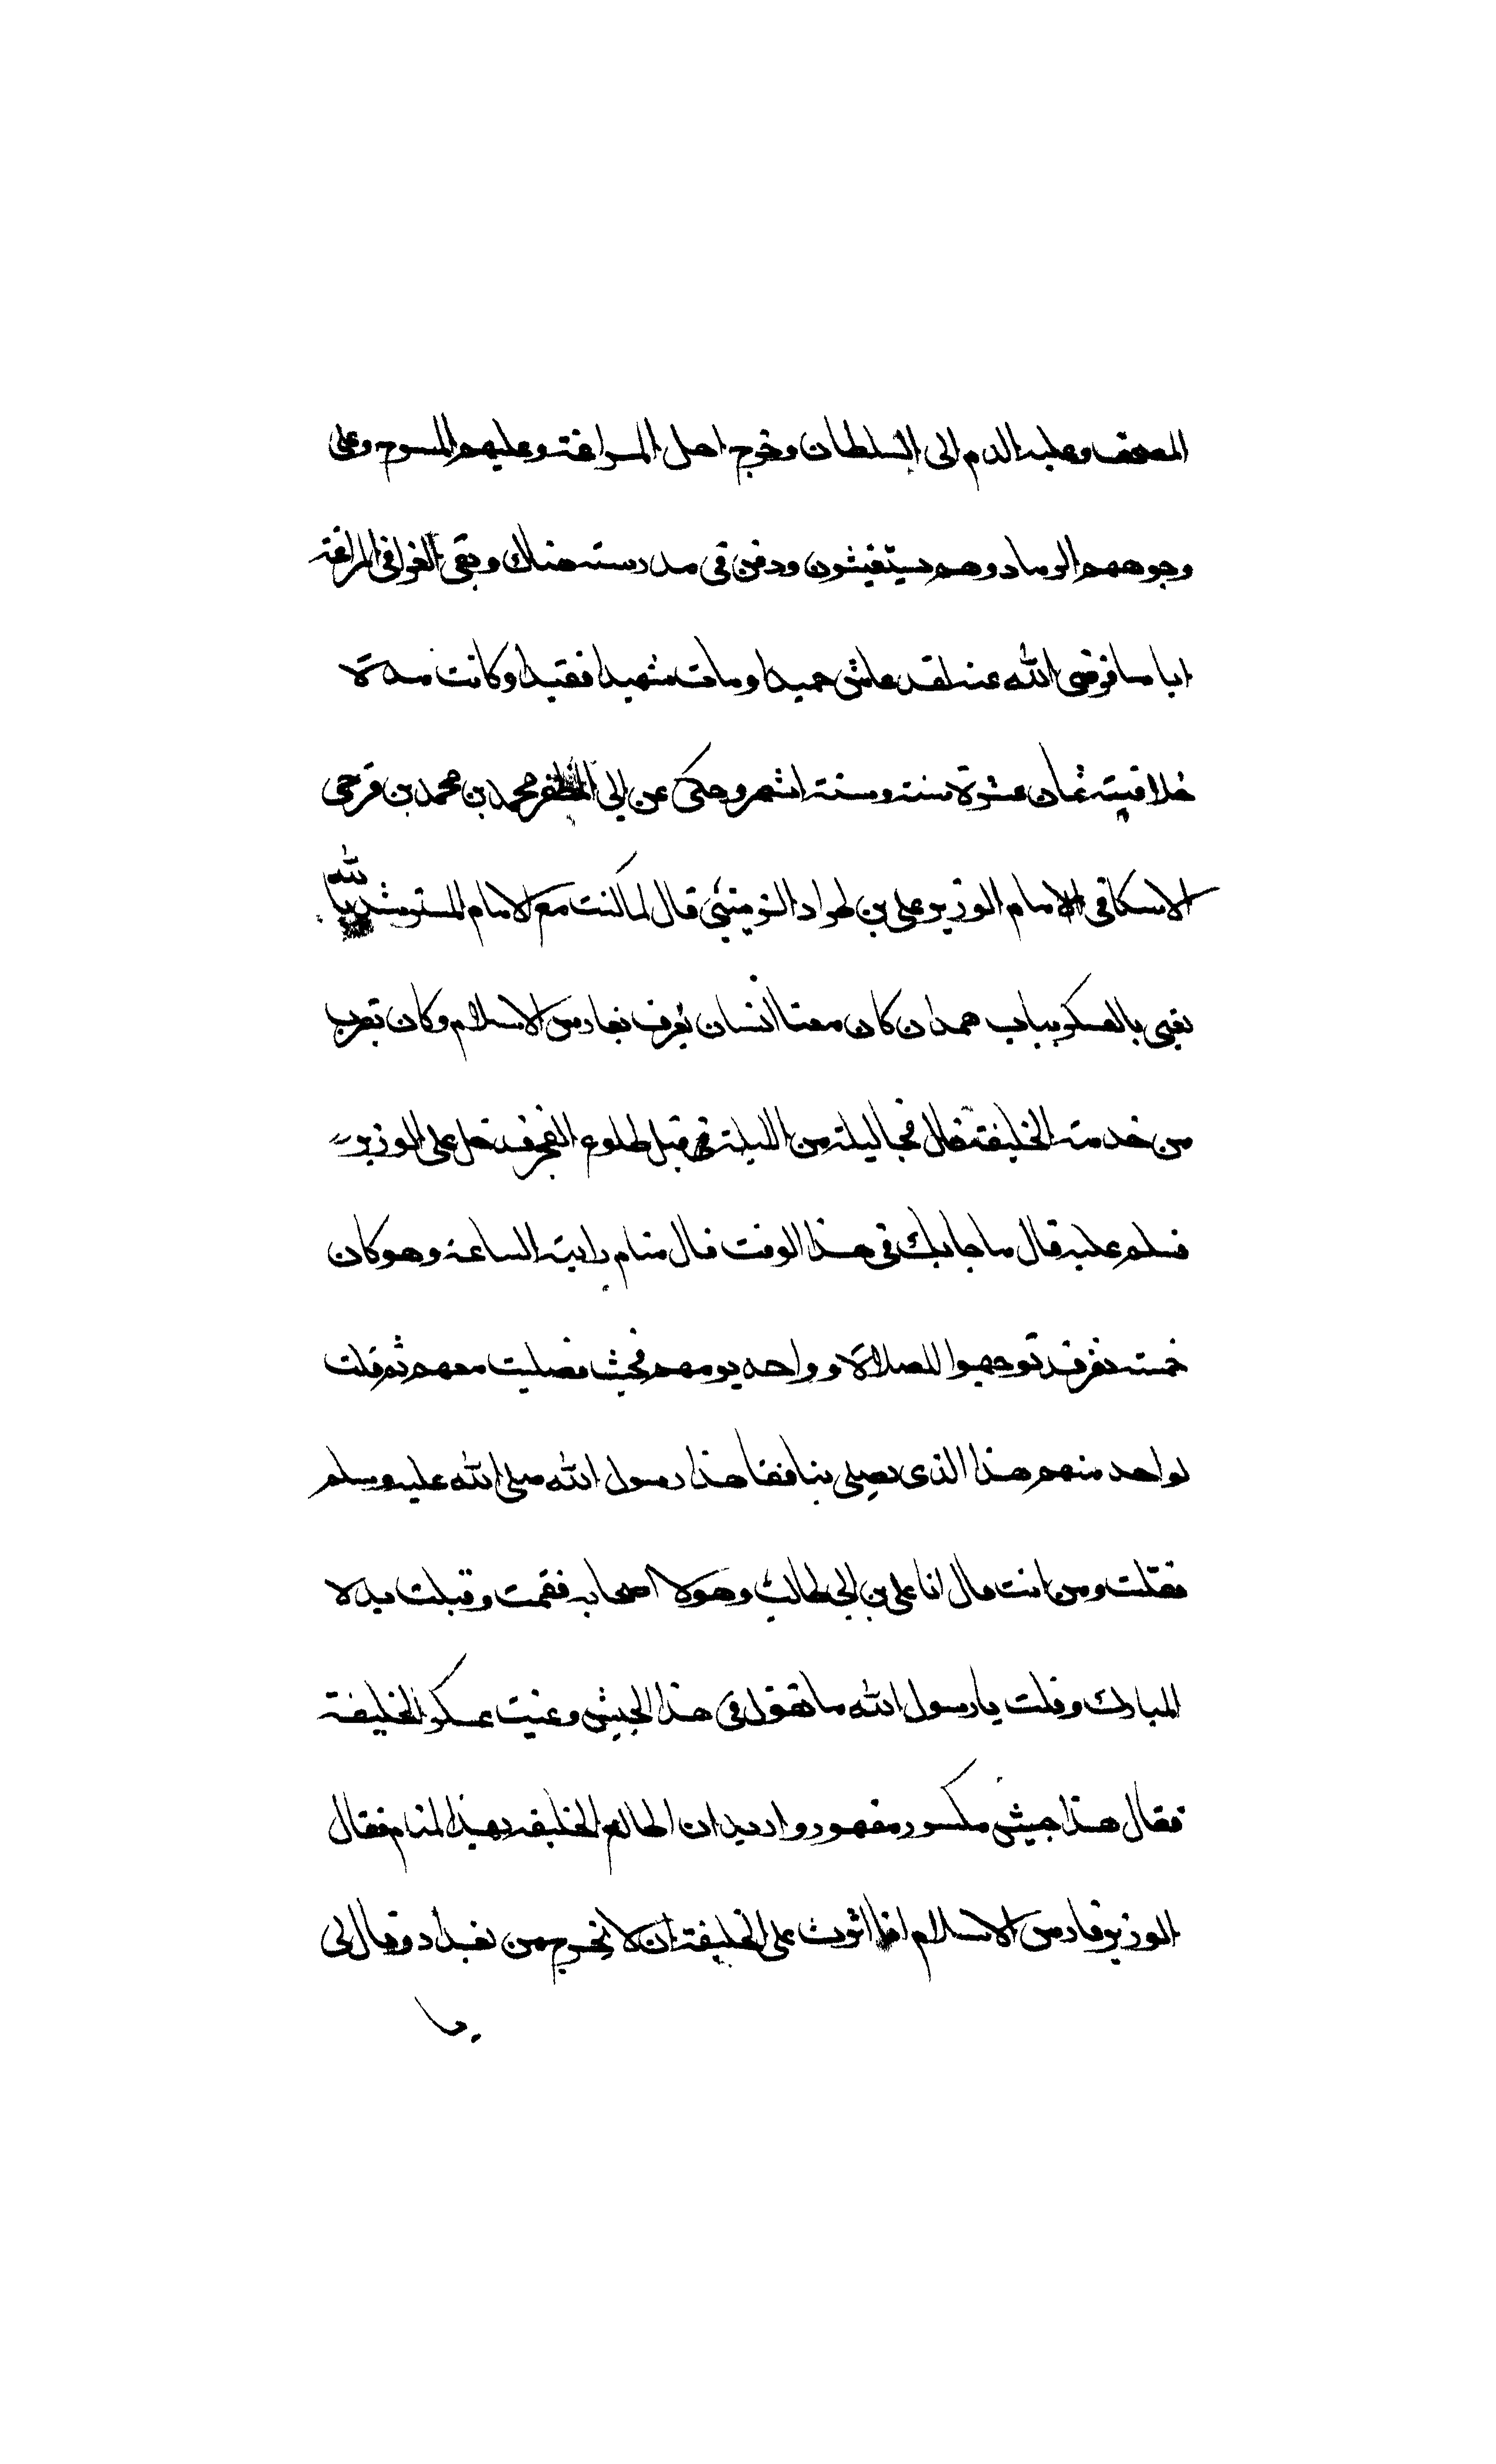 المصحف وعليه الدم الى السلطان وخرج اهل المراغة وعليهم المسوح وعلى
وجوههم الرماد وهم يستغيثون ودفن في مدرسته هناك وبقى العزا في المراغة
اياما فرضى الله عنه لقد عاش حميدا ومات شهيدا فقيدا وكانت مدة
خلافيته ثمان عشرة سنة وستة اشهر وحكى عن ابي المظفر محمد بن محمد بن قرحى
الاسكافي الامام الوزير على بن طراد الزينبي قال لما كنت مع الامام المسترشد بالله
بقي بالعسكر بباب همدان كان معنا انسان يعرف بفارس الاسلام وكان يقرب
من خدمة الخليفة فقال فجا ليلة من الليلة قبل طلوع الفجر فدخل على الوزير
فسلم عليه قال ما جابك في هذا الوقت فقال منام رايته الساعة وهو كان
خمسة نفر قد توجهوا للصلاة وواحد يومهم فجيت فصليت معهم ثم قلت
لواحد منهم هذا الذى يصلى بنا فقا هذا رسول الله صلى الله عليه وسلم
فقلت ومن انت قال انا على بن ابي طالب وهولا اصحابه فقمت وقبلت يده
المبارك وقلت يارسول الله ما تقول في هذا الجيش وعنيت عسكر الخليفة
فقال هذا جيش مكسور مقهور واريد ان اطالع الخليفه بهذا المنام فقال
الوزير فارس الاسلام انا اشرت على الخليفة ان لا يخرج من بغداد وقال لى
يا